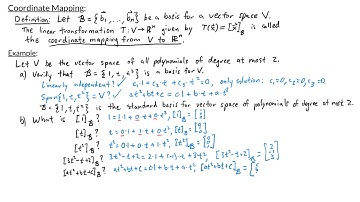 Coordinate Mapping:
Definition: Let B = {b₁,...,bₙ} be a basis for a vector space V.
The linear transformation T: V → ℝⁿ given by T(x̄) = [x̄]_B is called
the coordinate mapping from V to ℝⁿ.
Example:
Let V be the vector space of all polynomials of degree at most 2.
a) Verify that B = {1, t, t²} is a basis for V.
Linearly independent? ✓ c₁·1 + c₂·t + c₃·t² = 0, only solution: c₁=0, c₂=0, c₃=0.
Span{1, t, t²} = V? ✓ at²+bt+c = c·1+b·t+a·t²
B = {1, t, t²} is the standard basis for vector space of polynomials of degree at most 2.
b) What is [1]_B? 1 = 1·1 + 0·t + 0·t², [1]_B = [1 0 0]
[t]_B? t = 0·1 + 1·t + 0·t², [t]_B = [0 1 0]
[t²]_B? t² = 0·1 + 0·t + 1·t², [t²]_B = [0 0 1]
[3t²-t+2]_B? 3t²-t+2 = 2·1+(-1)·t+3·t², [3t²-t+2]_B = [2 -1 3]
[at²+bt+c]_B? at²+bt+c = c·1+b·t+a·t², [at²+bt+c]_B = [c b